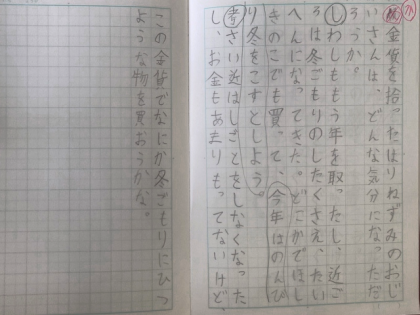 金貨を拾ったはりねずみのおじ
いさんは、どんな気分になっただ
ろうか。
し わしももう年を取ったし、近ご
ろは冬ごもりのしたくさえ、たい
へんになってきた。どこかでほし
きのこでも買って、今年はのんび
り冬をこすとしよう。
考 さい近はしごとをしなくなった
し、お金もあまりもってないけど、
この金貨でなにか冬ごもりにひつ
ような物を買おうかな。